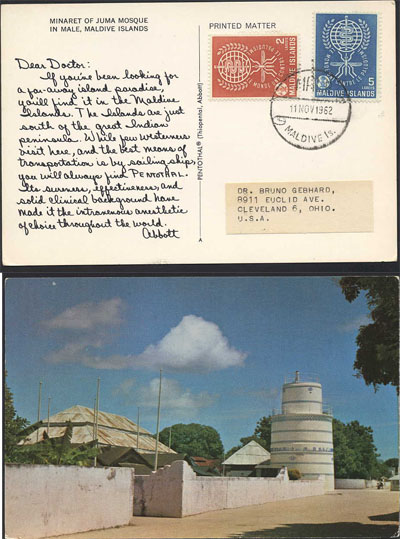 MINARET OF JUMA MOSQUE
IN MALE, MALDIVE ISLANDS
Dear Doctor:
If you've been looking for
a far-away island paradise,
you'll find it in the Maldive
Islands. The Islands are just
south of the great Indian
peninsula. While few westerners
visit here, and the best means of
transportation is by sailing ship,
you will always find PENTOTHAL.
Its sureness, effectiveness, and
solid clinical background have
made it the intravenous anesthetic
of choice throughout the world.
Abbott
PENTOTHAL® (Thiopental, Abbott)
A
PRINTED MATTER
2
MALDIVE ISLANDS
5
LAREES
MALDIVE ISLANDS
11 NOV 1962
MALDIVE Is.
DR. BRUNO GEBHARD,
8911 EUCLID AVE.
CLEVELAND 6, OHIO.
U.S.A.